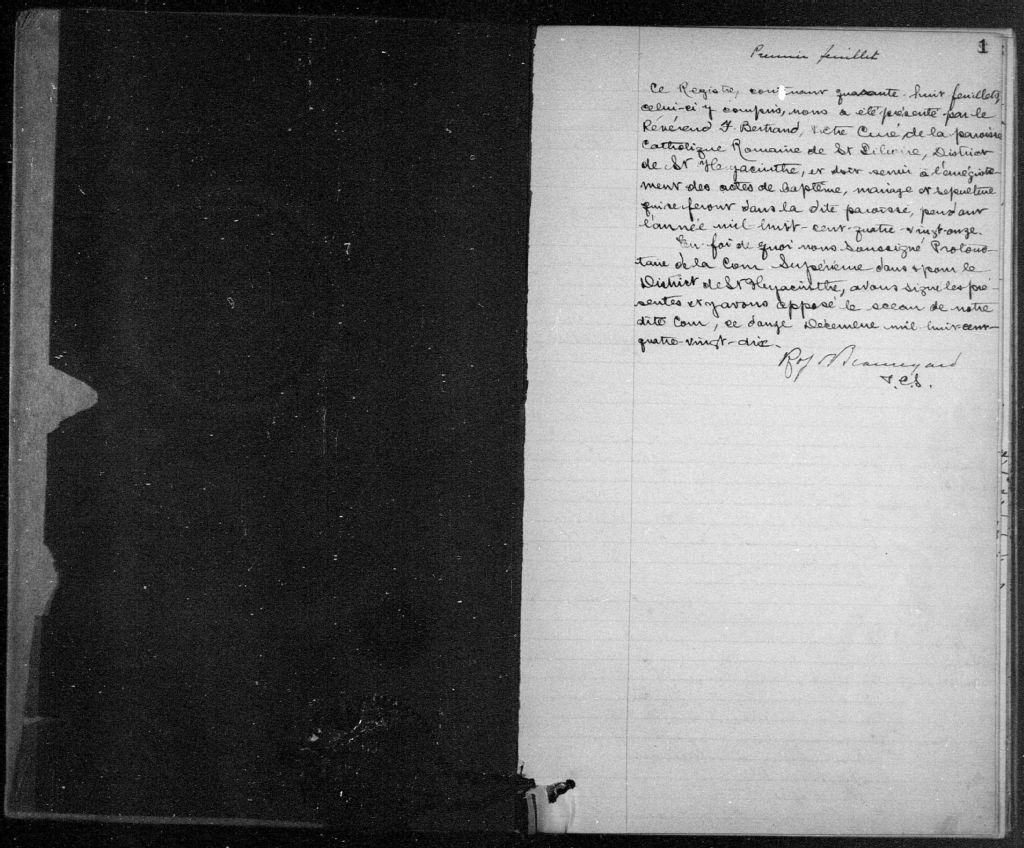 1
Premier feuillet
Ce Registre, contenant quarante-huit feuillets,
celui-ci y compris, nous a été présenté par le
Révérend F. Bertrand, Ptre Curé, de la paroisse
Catholique Romaine de St Liboire, District
de St Hyacinthe, et doit servir à l'enrégistre-
ment des actes de baptême, mariage et sépulture
qui se feront dans la dite paroisse, pendant
l'année mil huit-cent-quatre-vingt-onze.
En foi de quoi nous Soussigné Protono-
taire de la Cour Supérieure dans & pour le
District de St Hyacinthe, avons signé les pré-
sentes et y avons apposé le sceau de notre
dite Cour, ce Decembre mil huit cent
quatre-vingt-dix.
Beauregard
P.C.S.